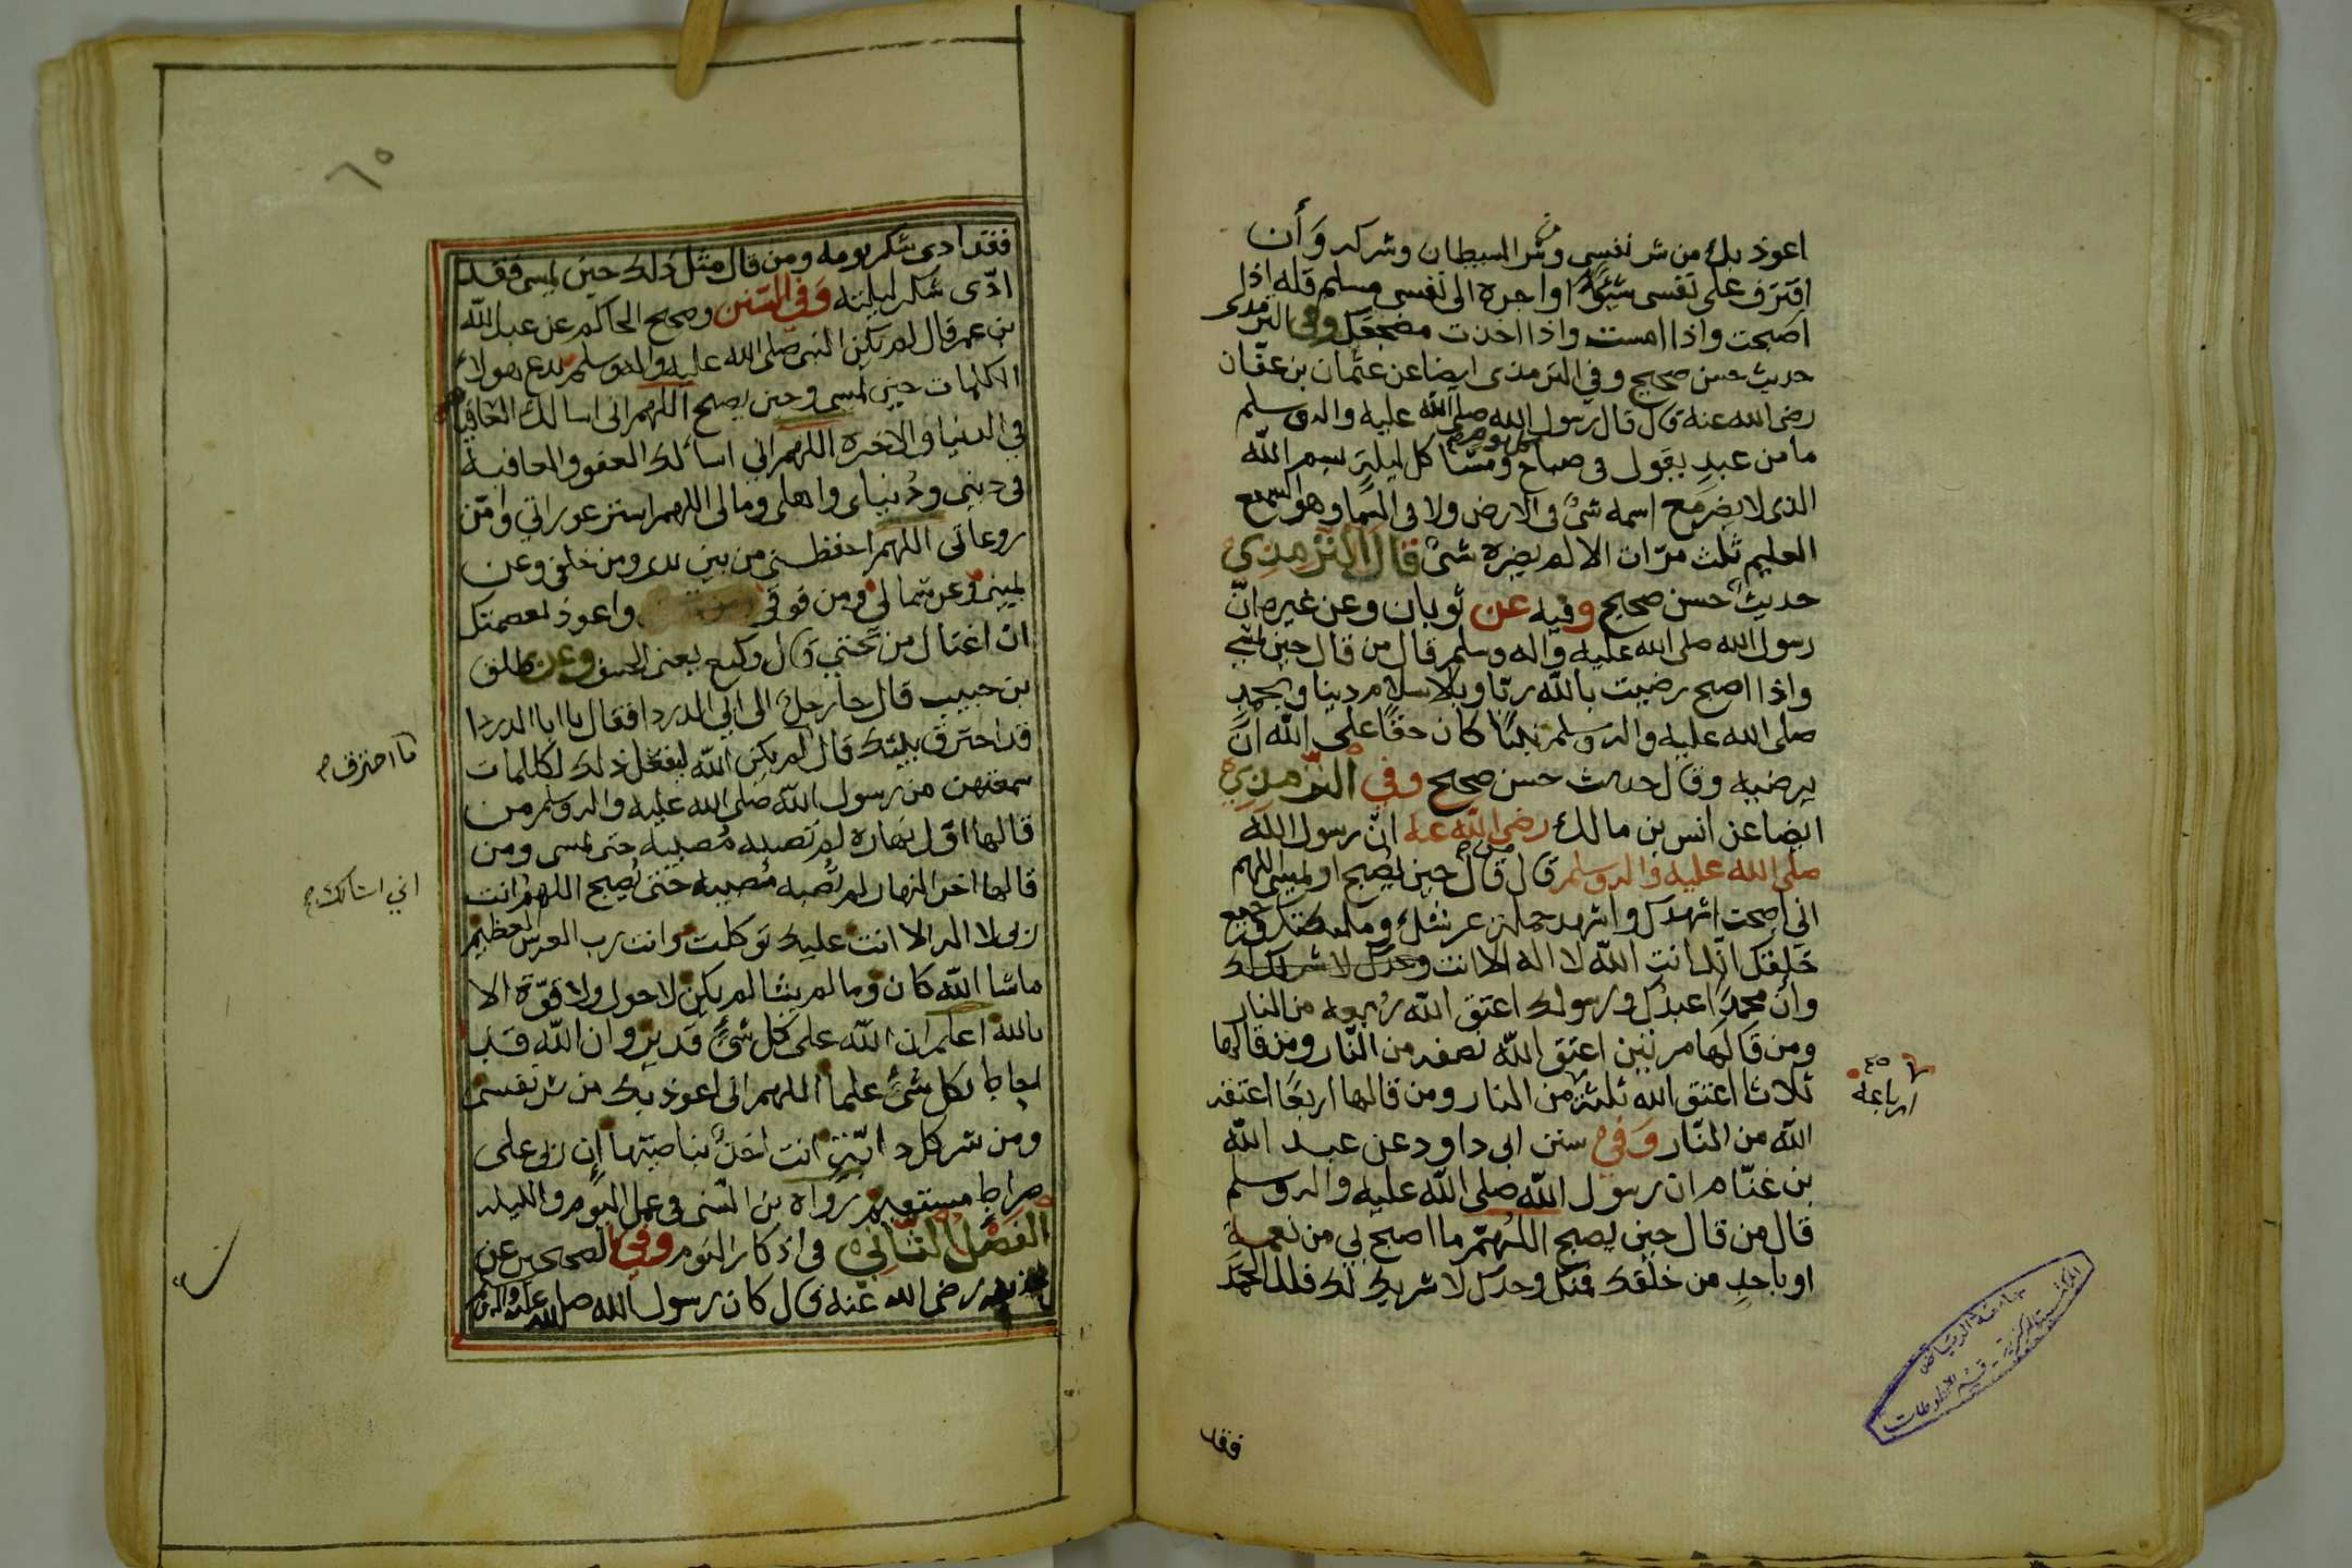 اعوذ بك من شر نفسي وشر الشيطان وشركه وَأن
اقترف على نفسى سُوًا او اجره الى نفسى مسلم قله اذا
اصبحت واذا امست واذا اخذت مضجعك وفى الترمدى
حديث حسن صحيح وفي الترمذى ايضا عن عثمان بن عفّان
رضى الله عنه قال قال رسول الله صلى الله عليه واله وسلم
ما من عبدٍ يقول فى صباح كل يوم ومسَا كل ليلةٍ بسم الله
الذى لا يضر مع اسمه شئ فى الارض ولا فى السما وهو السميع
العليم ثلث مرّات الا لم يضره شئ قال الترمذى
حديث حسن صحيح وفيه عن ثوبان وعن غيره انّ
رسول الله صلى الله عليه واله وسلم قال من قال حين يمسي
واذا اصبح رضيت بالله ربّا وبالاسلام دينا وبمحمدٍ
صلى الله عليه واله وسلم نبيّا كان حقًا على الله انَّ
يرضيه وقال حديث حسن صحيح وفي الترمذي
ايضا عن انس بن مالك رضى الله عنه انّ رسول الله
صلى الله عليه واله وسلم قال من قال حين يصبح او يمسى اللهم
انى اصبحت اشهدك واشهد حملة عرشك وملئكتك وجميع
خلقك انّك انت الله لا اله الا انت وحدك لا شريك لك
وانّ محمدًا عبدك ورسولك اعتق الله ربعه من النار
ومن قالها مرتين اعتق الله نصفه من النّار ومن قالها
ثلاثا اعتق الله ثلثة من النار ومن قالها اربعًا اعتقه
ارباعه
الله من النّار وَفي سنن ابى داود عن عبد الله
بن غنّام ان رسول الله صلى الله عليه واله وسلم
قال من قال حين يصبح اللهّم ما اصبح بي من نعمة
او باحدٍ من خلقك فمنك وحدك لا شريك لك فلك الحمَد
فقد
جامعة الرياض
المكتبة المركزية - قسم المخطوطات
٦٥
فقد ادى شكر يومه ومن قال مثل ذلك حين يمسى فقد
ادّى شكر ليلته وَفي السّنن وصحيح الحاكم عن عبد الله
بن عمر قال لم يكن النبى صلى الله عليه واله وسلم يدع هولاء
الكلمات حين يمسى وحين يصبح اللهم انى اسالك العافية
في الدنيا والاخرة اللهم اني اسألك العفو والعافية
فى دينى ودُنياى واهلى ومالى اللهم استر عوراتي وامّن
روعاتى اللهم احفظنى من بين يدى ومن خلفى وعن
يمينى وعن شمالى ومن فوقى واعوذ بعصمتك
ان اغتال من تحتي قال وكيع يعنى الخسف وعن طلق
بن حبيب قال جا رجل الى ابي الدردا فقال يا ابا الدردا
قد احترق بيتك قال لم يكن الله ليفعل ذلك لكلمات
ما احترق
سمعتهن من رسول الله صلى الله عليه واله وسلم من
قالها اوّل نهاره لم تصيبه مُصيبه حتى يمسى ومن
قالها اخر النهار لم تصبه مُصيبه حتى يُصبح اللهم انت
ربى لا اله الا انت عليك توكلت وانت رب العرش العظيم
ماشا الله كان وما لم يشا لم يكن لا حول ولا قوّة الا
بالله اعلم ان الله على كل شئٍ قدير وان الله قد
احاط بكل شئ علما اللهم انى اعوذ بك من شر نفسى
ومن شر كل دابّة انت اخذ بناصيتها إن ربى على
صراط مستقيم رواه بن السّنى فى عمل اليوم والليله
الفصل الثاني فى اذكار النوم وفي الصحيحين عن
رضى الله عنه قال كان رسول الله صلى الله عليه واله وسلم